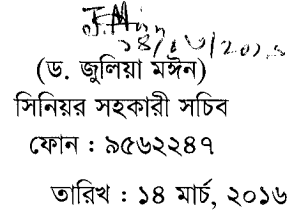 (ড. জুলিয়া মঈন)
সিনিয়র সহকারী সচিব
ফোন : ৯৫৬২২৪৭
তারিখ : ১৪ মার্চ, ২০১৬